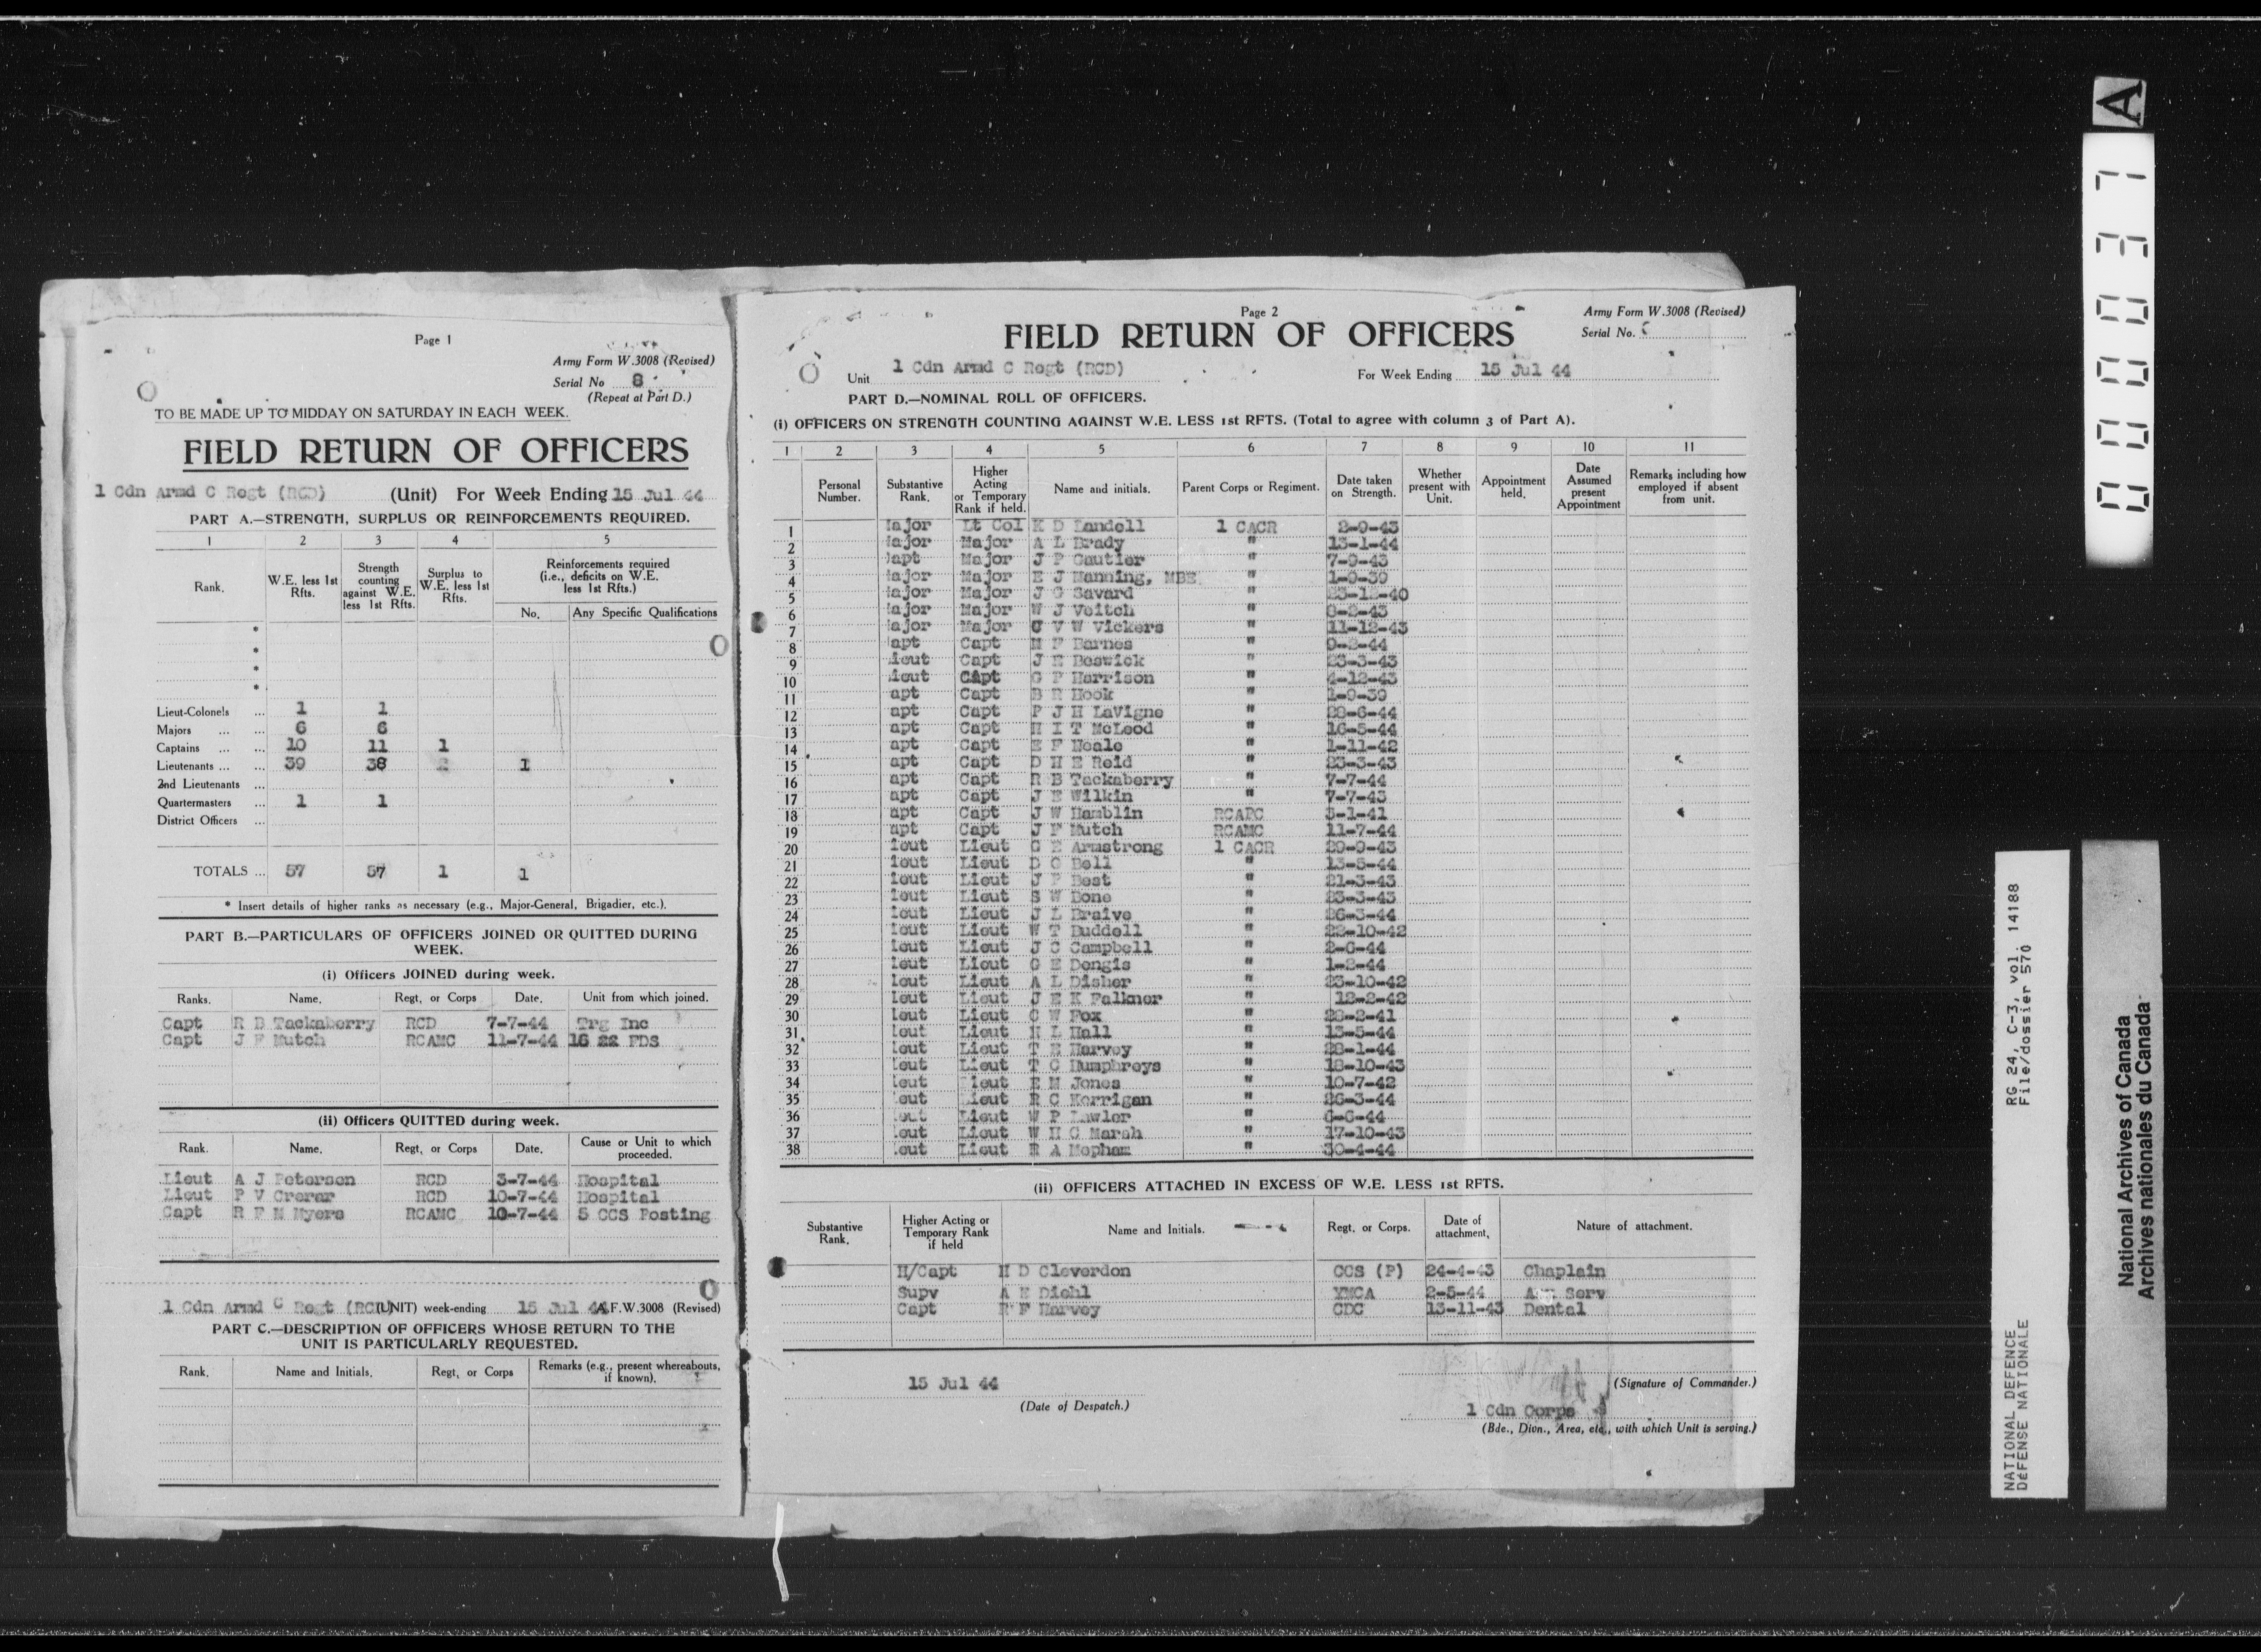 Page 1
Army Form W.3008 (Revised)
Serial No 8
(Repeat at Part D.)
TO BE MADE UP TO MIDDAY ON SATURDAY IN EACH WEEK.
FIELD RETURN OF OFFICERS
1 Cdn Armd C Regt (RCD) (Unit) For Week Ending 15 Jul 44
PART A.—STRENGTH, SURPLUS OR REINFORCEMENTS REQUIRED.
1 2 3 4 5
Rank. W.E. less 1st Rfts. Strength counting against W.E. less 1st Rfts. Surplus to W.E. less 1st Rfts. Reinforcements required (i.e., deficits on W.E. less 1st Rfts.)
No. Any Specific Qualifications
*
*
*
*
Lieut-Colonels ... 1 1
Majors ... ... 6 6
Captains ... ... 10 11 1
Lieutenants ... ... 39 38 1
2nd Lieutenants ...
Quartermasters ... 1 1
District Officers ...
TOTALS ... 57 57 1 1
* Insert details of higher ranks as necessary (e.g., Major-General, Brigadier, etc.).
PART B.—PARTICULARS OF OFFICERS JOINED OR QUITTED DURING
WEEK.
(i) Officers JOINED during week.
Ranks. Name. Regt, or Corps Date. Unit from which joined.
Capt R B Tackaberry RCD 7-7-44 Trg Inc
Capt J F Mutch RCAMC 11-7-44 16 22 FDS
(ii) Officers QUITTED during week.
Rank. Name. Regt, or Corps Date. Cause or Unit to which proceeded.
Lieut A J Peterson RCD 3-7-44 Hospital
Lieut P V Crerar RCD 10-7-44 Hospital
Capt R F M Myers RCAMC 10-7-44 5 CCS Posting
1 Cdn Armd C Regt (RCD) (UNIT) week-ending 15 Jul 44 A.F.W.3008 (Revised)
PART C.—DESCRIPTION OF OFFICERS WHOSE RETURN TO THE
UNIT IS PARTICULARLY REQUESTED.
Rank. Name and Initials. Regt, or Corps Remarks (e.g., present whereabouts, if known).
Page 2
Army Form W.3008 (Revised)
FIELD RETURN OF OFFICERS
Serial No.
Unit 1 Cdn Armd C Regt (RCD) For Week Ending 15 Jul 44
PART D.—NOMINAL ROLL OF OFFICERS.
(i) OFFICERS ON STRENGTH COUNTING AGAINST W.E. LESS 1st RFTS. (Total to agree with column 3 of Part A).
1 2 3 4 5 6 7 8 9 10 11
Personal Number. Substantive Rank. Higher Acting or Temporary Rank if held. Name and initials. Parent Corps or Regiment. Date taken on Strength. Whether present with Unit. Appointment held. Date Assumed present Appointment Remarks including how employed if absent from unit.
1 Major Lt Col K D Landell 1 CACR 2-9-43
2 Major Major A L Brady " 13-1-44
3 Capt Major J P Gautier " 7-9-43
4 Major Major E J Manning, MBE " 1-9-39
5 Major Major J G Savard " 23-12-40
6 Major Major W J Veitch " 8-2-43
7 Major Major C V W Vickers " 11-12-43
8 apt Capt M F Barnes " 9-2-44
9 ieut Capt J E Beswick " 23-3-43
10 ieut CApt G P Harrison " 4-12-43
11 apt Capt B R Hook " 1-9-39
12 apt Capt P J H LaVigne " 28-6-44
13 apt Capt H I T McLeod " 16-5-44
14 apt Capt E F Neale " 1-11-42
15 apt Capt D H E Reid " 23-3-43
16 apt Capt R B Tackaberry " 7-7-44
17 apt Capt J E Wilkin " 7-7-43
18 apt Capt J W Hamblin RCAPC 5-1-41
19 apt Capt J F Mutch RCAMC 11-7-44
20 ieut Lieut G E Armstrong 1 CACR 29-9-43
21 ieut Lieut D C Bell " 13-5-44
22 ieut Lieut J F Best " 21-3-43
23 ieut Lieut S W Bone " 23-3-43
24 ieut Lieut J L Braive " 26-3-44
25 ieut Lieut W T Buddell " 22-10-42
26 ieut Lieut J C Campbell " 2-6-44
27 ieut Lieut G E Dengis " 1-2-44
28 ieut Lieut A L Disher " 23-10-42
29 ieut Lieut J E K Falkner " 12-2-42
30 ieut Lieut C W Fox " 28-2-41
31 ieut Lieut H L Hall " 13-5-44
32 ieut Lieut T E Harvey " 28-1-44
33 ieut Lieut T C Humphreys " 18-10-43
34 ieut Lieut E M Jones " 10-7-42
35 eut Lieut R C Kerrigan " 26-3-44
36 eut Lieut W P Lawler " 6-6-44
37 eut Lieut W H G Marsh " 17-10-43
38 eut Lieut R A Mopham " 30-4-44
(ii) OFFICERS ATTACHED IN EXCESS OF W.E. LESS 1st RFTS.
Substantive Rank. Higher Acting or Temporary Rank if held Name and Initials. Regt, or Corps. Date of attachment. Nature of attachment.
H/Capt H D Cleverdon CCS (P) 24-4-43 Chaplain
Supv A E Diehl YMCA 2-5-44 Aux Serv
Capt R F Harvey CDC 13-11-43 Dental
15 Jul 44
(Date of Despatch.)
(Signature of Commander.)
1 Cdn Corps
(Bde., Divn., Area, etc., with which Unit is serving.)
A
000037
RG 24, C-3, vol. 14188
File/dossier 570
NATIONAL DEFENCE
DéFENSE NATIONALE
National Archives of Canada
Archives nationales du Canada